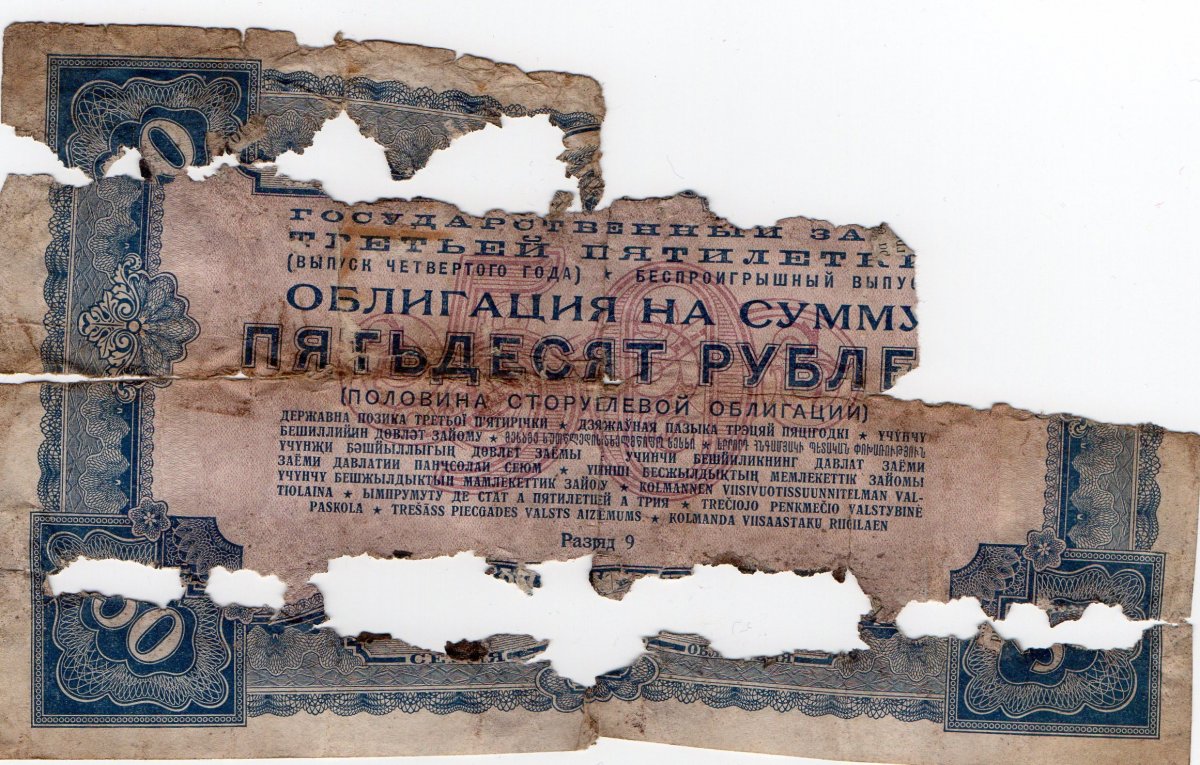 0
ГОСУДАРСТВЕННЫЙ ЗА
ТРЕТЬЕЙ ПЯТИЛЕТК
(ВЫПУСК ЧЕТВЕРТОГО ГОДА) ★ БЕСПРОИГРЫШНЫЙ ВЫПУ
50
ОБЛИГАЦИЯ НА СУММУ
ПЯТЬДЕСЯТ РУБЛЕ
(ПОЛОВИНА СТОРУБЛЕВОЙ ОБЛИГАЦИИ)
ДЕРЖАВНА ПОЗИКА ТРЕТЬОЇ П'ЯТИРІЧКИ ★ ДЗЯРЖАЎНАЯ ПАЗЫКА ТРЭЦЯЙ ПЯЦІГОДКІ ★ ҮЧҮНЧҮ
БЕШИЛЛИЙИН ДӨВЛӘТ ЗАЙОМУ ★ ★ ԵՐՐՈՐԴ ՀՆԳԱՄՅԱԿԻ ՊԵՏԱԿԱՆ ՓՈԽԱՌՈՒԹՅՈՒՆ
ҮЧҮНҖИ БӘШЙЫЛЛЫГЫҢ ДӨВЛЕТ ЗАЕМЫ УЧИНЧИ БЕШЙИЛИКНИНГ ДАВЛАТ ЗАЁМИ
ЗАЁМИ ДАВЛАТИИ ПАНҶСОЛАИ СЕЮМ ★ ҮШІНШІ БЕСЖЫЛДЫҚТЫҢ МЕМЛЕКЕТТІК ЗАЙОМЫ
ҮЧҮНЧҮ БЕШЖЫЛДЫКТЫН МАМЛЕКЕТТИК ЗАЙОМУ ★ KOLMANNEN VIISIVUOTISSUUNNITELMAN VAL-
TIOLAINA ★ ЫМПРУМУТУ ДЕ СТАТ А ПЯТИЛЕТНЕЙ А ТРИЯ ★ TREČIOJO PENKMEČIO VALSTYBINĖ
PASKOLA ★ TREŠĀSS PIECGADES VALSTS AIZŅĒMUMS ★ KOLMANDA VIISAASTAKU RIIGILAEN
Разряд 9
50
СЕРИЯ